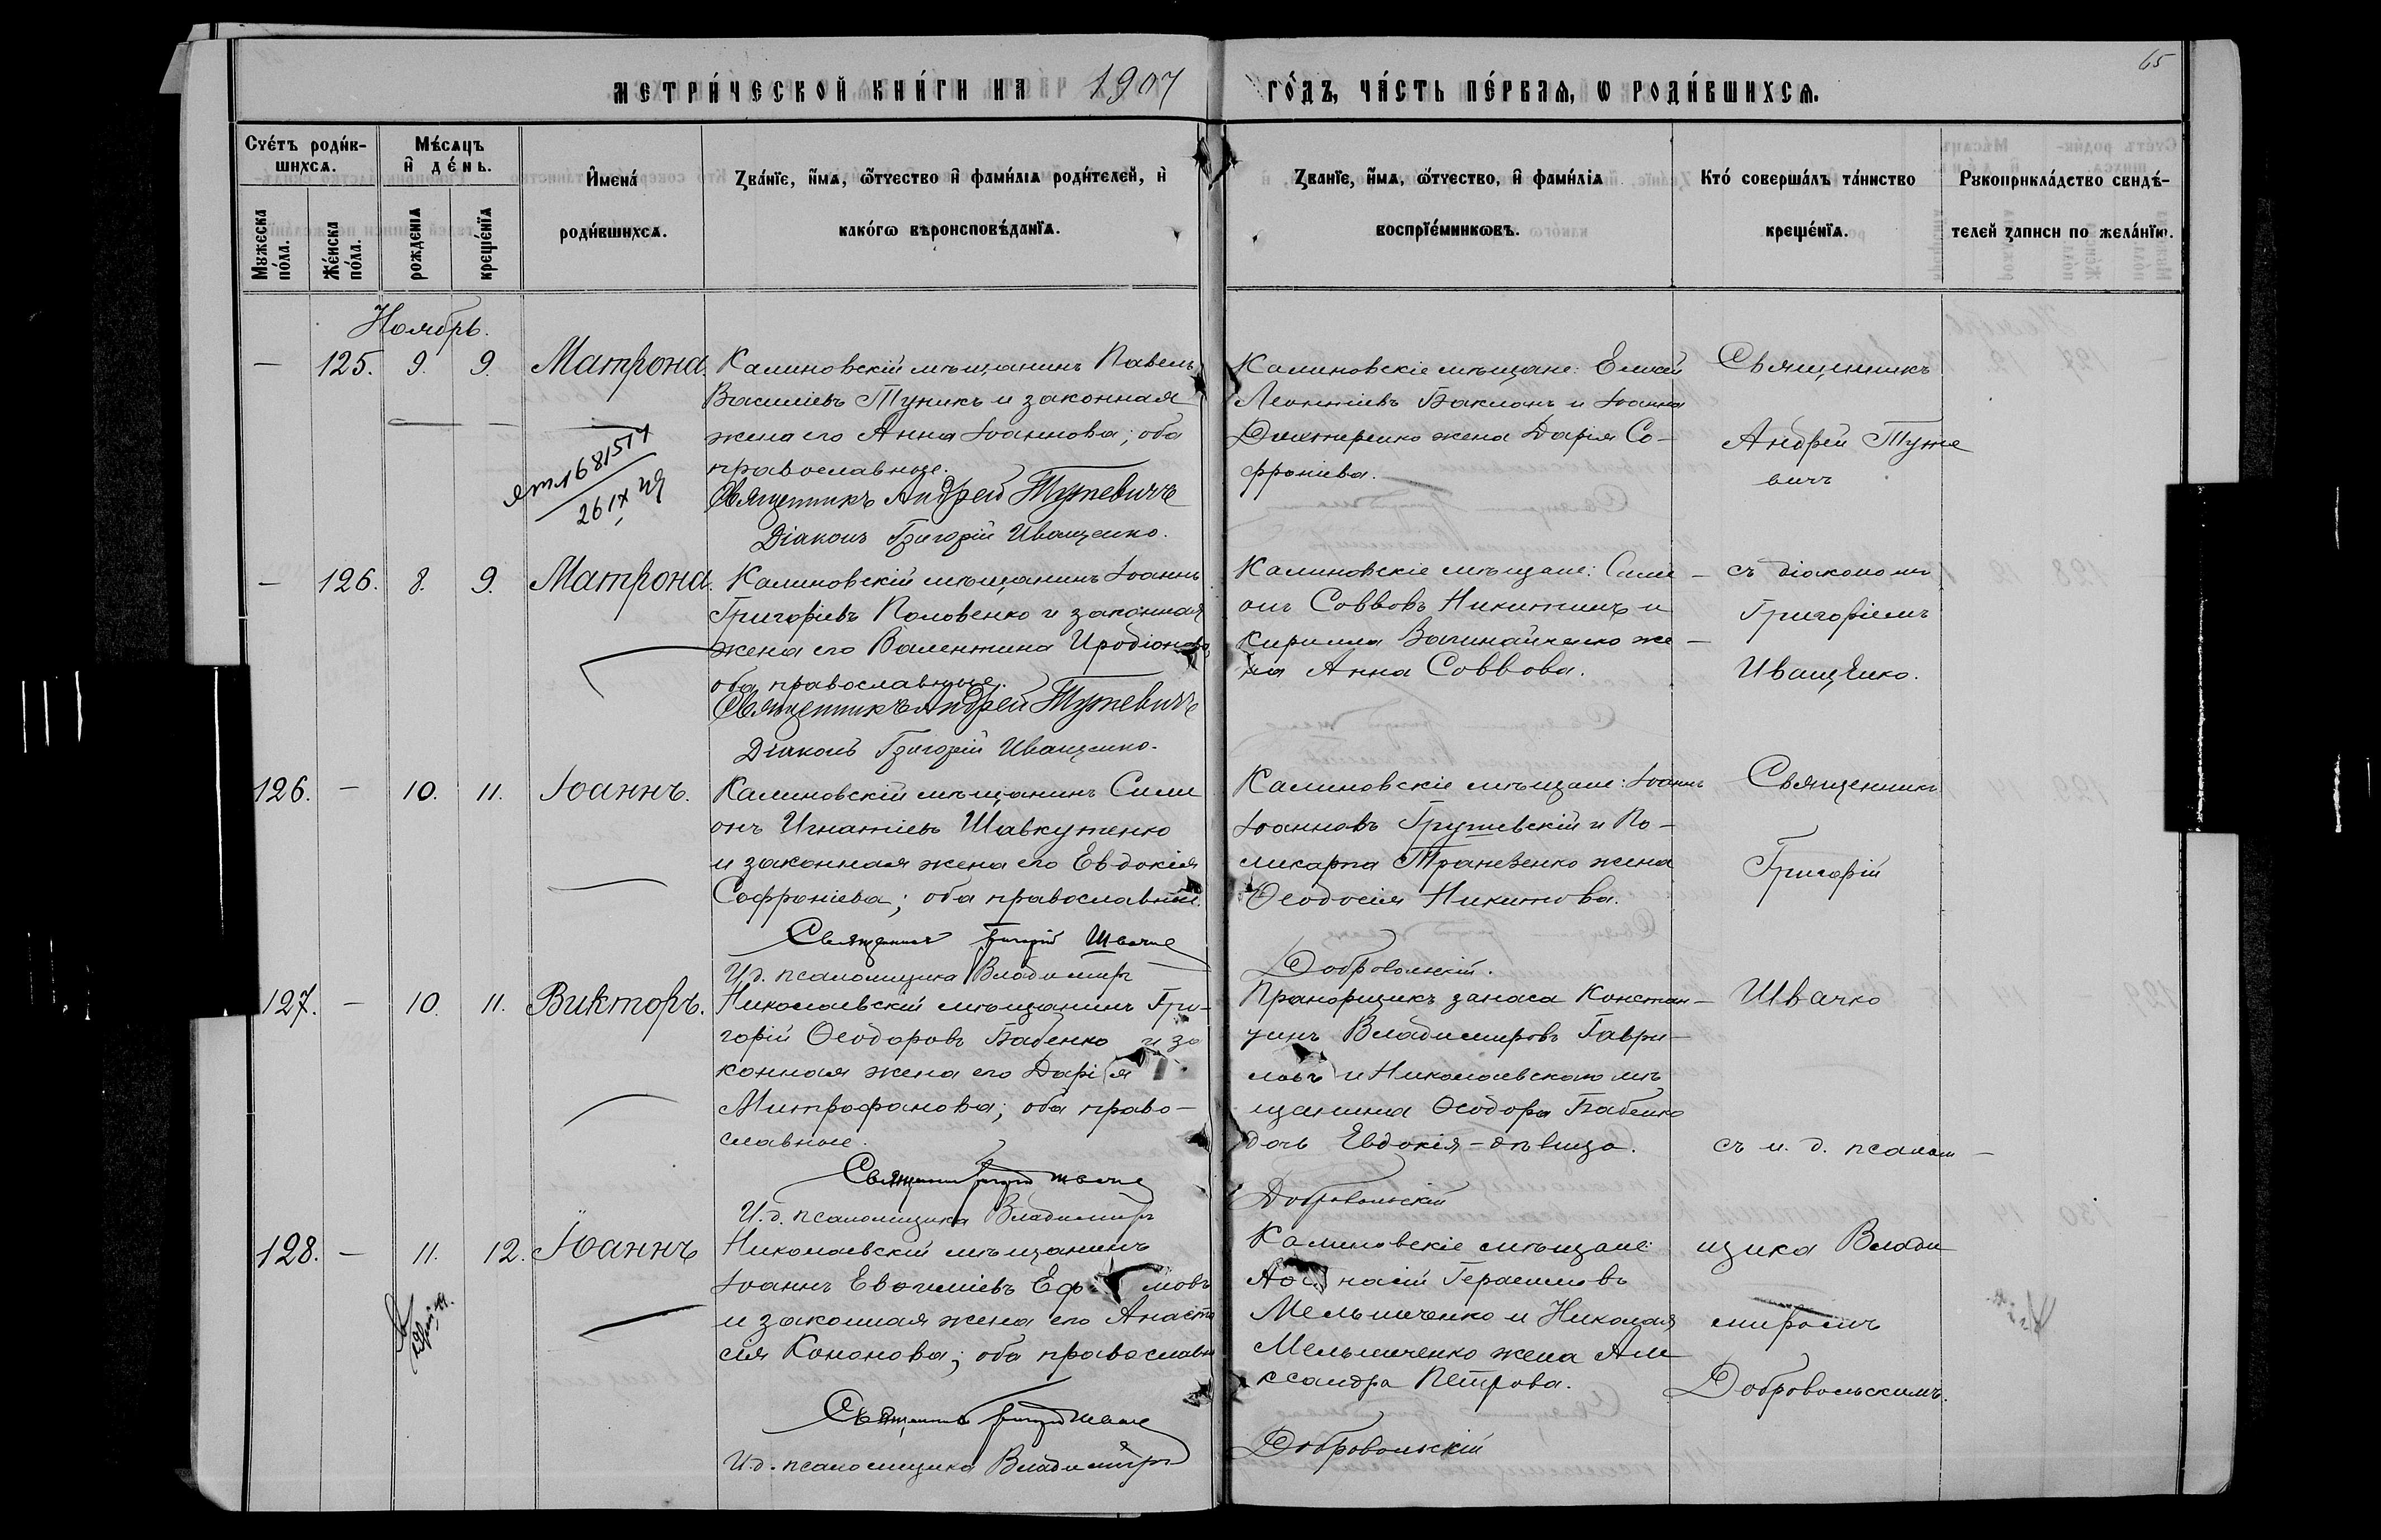 МЕТРИ́ЧЕСКОЙ КНИ́ГИ НА 1907
ГО́ДЪ, ЧА́СТЬ ПЕ́РВАѦ, Ѡ РОДИ́ВШИХСѦ.
65
Счётъ роди́в-
шихсѧ.
Мѣ́сѧцъ
и҆ де́нь.
Мꙋжеска
по́ла.
Же́нска
по́ла.
рожденїѧ
креще́нїѧ
И҆мена́
роди́вшихсѧ.
Зва́нїе, и҆́мѧ, ѻ҆́тчество и҆ фами́лїѧ роди́телей, и҆
како́гѡ вѣроисповѣ́данїѧ.
Званїе, и҆́мѧ, ѻ҆́тчество, и҆ фами́лїѧ
воспрїе́мникѡвъ.
Кто́ соверша́лъ та́инство
креще́нїѧ.
Рꙋкоприкла́дство свидѣ́-
телей записи по жела́нїю.
Ноябрь.
— 125. 9. 9. Матрона.
Калиновскій мѣщанинъ Павелъ
Василіевъ Туникъ и законная
жена его Анна Іоаннова; оба
православные.
Священникъ Андрей Тужевичъ
Діаконъ Григорій Иващенко.
Калиновскіе мѣщане: Елисей
Леонтіевъ Баклонъ и Іоанна
жена Дарія Со-
фроніева.
Священникъ
Андрей Туже
вичъ
— 126. 8. 9. Матрона.
Калиновскій мѣщанинъ Іоаннъ
Григоріевъ Половенко и законная
жена его Валентина Иродіонова,
оба православные.
Священникъ Андрей Тужевичъ
Діаконъ Григорій Иващенко.
Калиновскіе мѣщане: Симе-
онъ Соввовъ Никитинъ и
Кирилла же-
на Анна Соввова.
съ діакономъ
Григоріемъ
Иващенко.
126. — 10. 11. Іоаннъ.
Калиновскій мѣщанинъ Симе
онъ Игнатіевъ Шавкутенко
и законная жена его Евдокія
Софроніева; оба православные.
Священникъ Григорій Швачко
И.д. псаломщика Владимиръ
Калиновскіе мѣщане: Іоаннъ
Іоанновъ Грушевскій и По-
ликарпа жена
Ѳеодосія Никитова.
Добровольскій.
Священникъ
Григорій
127. — 10. 11. Викторъ.
Николаевскій мѣщанинъ Гри-
горій Ѳеодоровъ Бабенко и за
конная жена его Дарія
Митрофанова; оба право-
славные.
Священникъ Григорій Швачко
И.д. псаломщика Владимиръ
Прапорщикъ запаса Констан-
тинъ Владимировъ Гаври-
ловъ и Николаевскаго мѣ
щанина Ѳеодора Бабенко
дочь Евдокія - дѣвица.
Добровольскій
Швачко
съ и. д. псалом-
128. — 11. 12. Іоаннъ
Николаевскій мѣщанинъ
Іоаннъ мовъ
и законная жена его Анаста
сія Кононова; оба православн
Священникъ Григорій Швачко
И.д. псаломщика Владимиръ
Калиновскіе мѣщане:
насій Герасимовъ
Мельниченко и Николая
Мельниченко жена Але
ксандра Петрова.
Добровольскій
щика Влади
миромъ
Добровольскимъ.